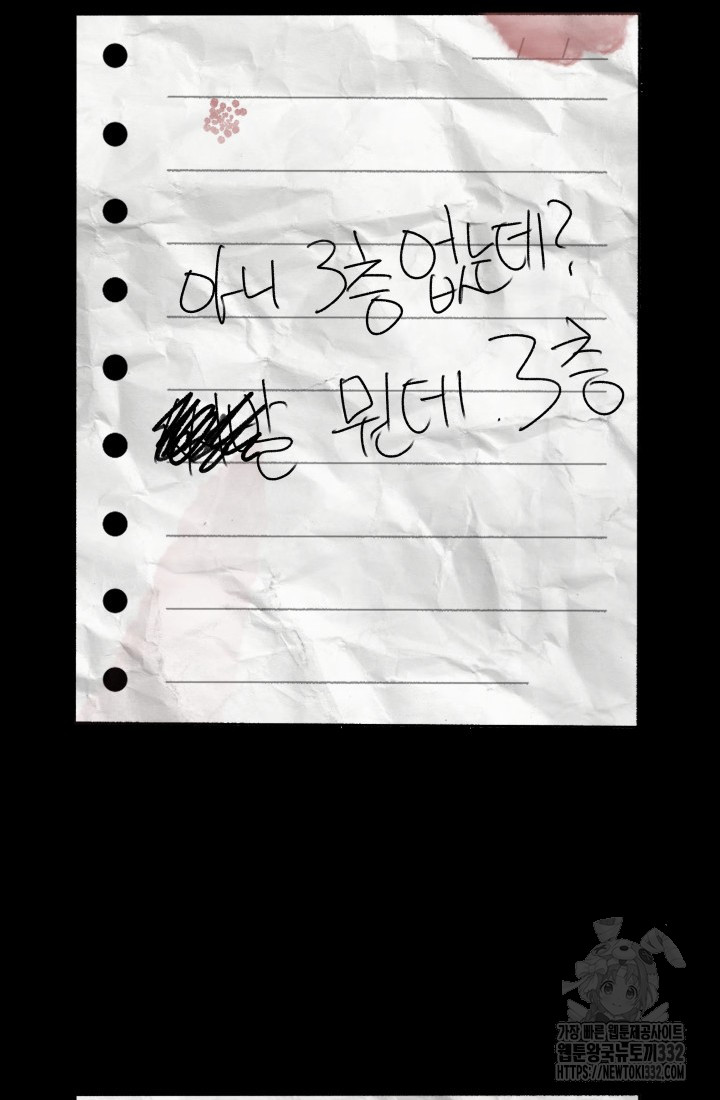 아니 3층 없는데?
발 뭔데 3층
가장 빠른 웹툰제공사이트
웹툰왕국뉴토끼332
HTTPS://NEWTOKI332.COM